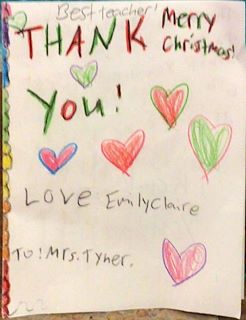 Best teacher!
THANK Merry
Christmas!
You!
LOVE EmilyClaire
To: Mrs. Tyner.